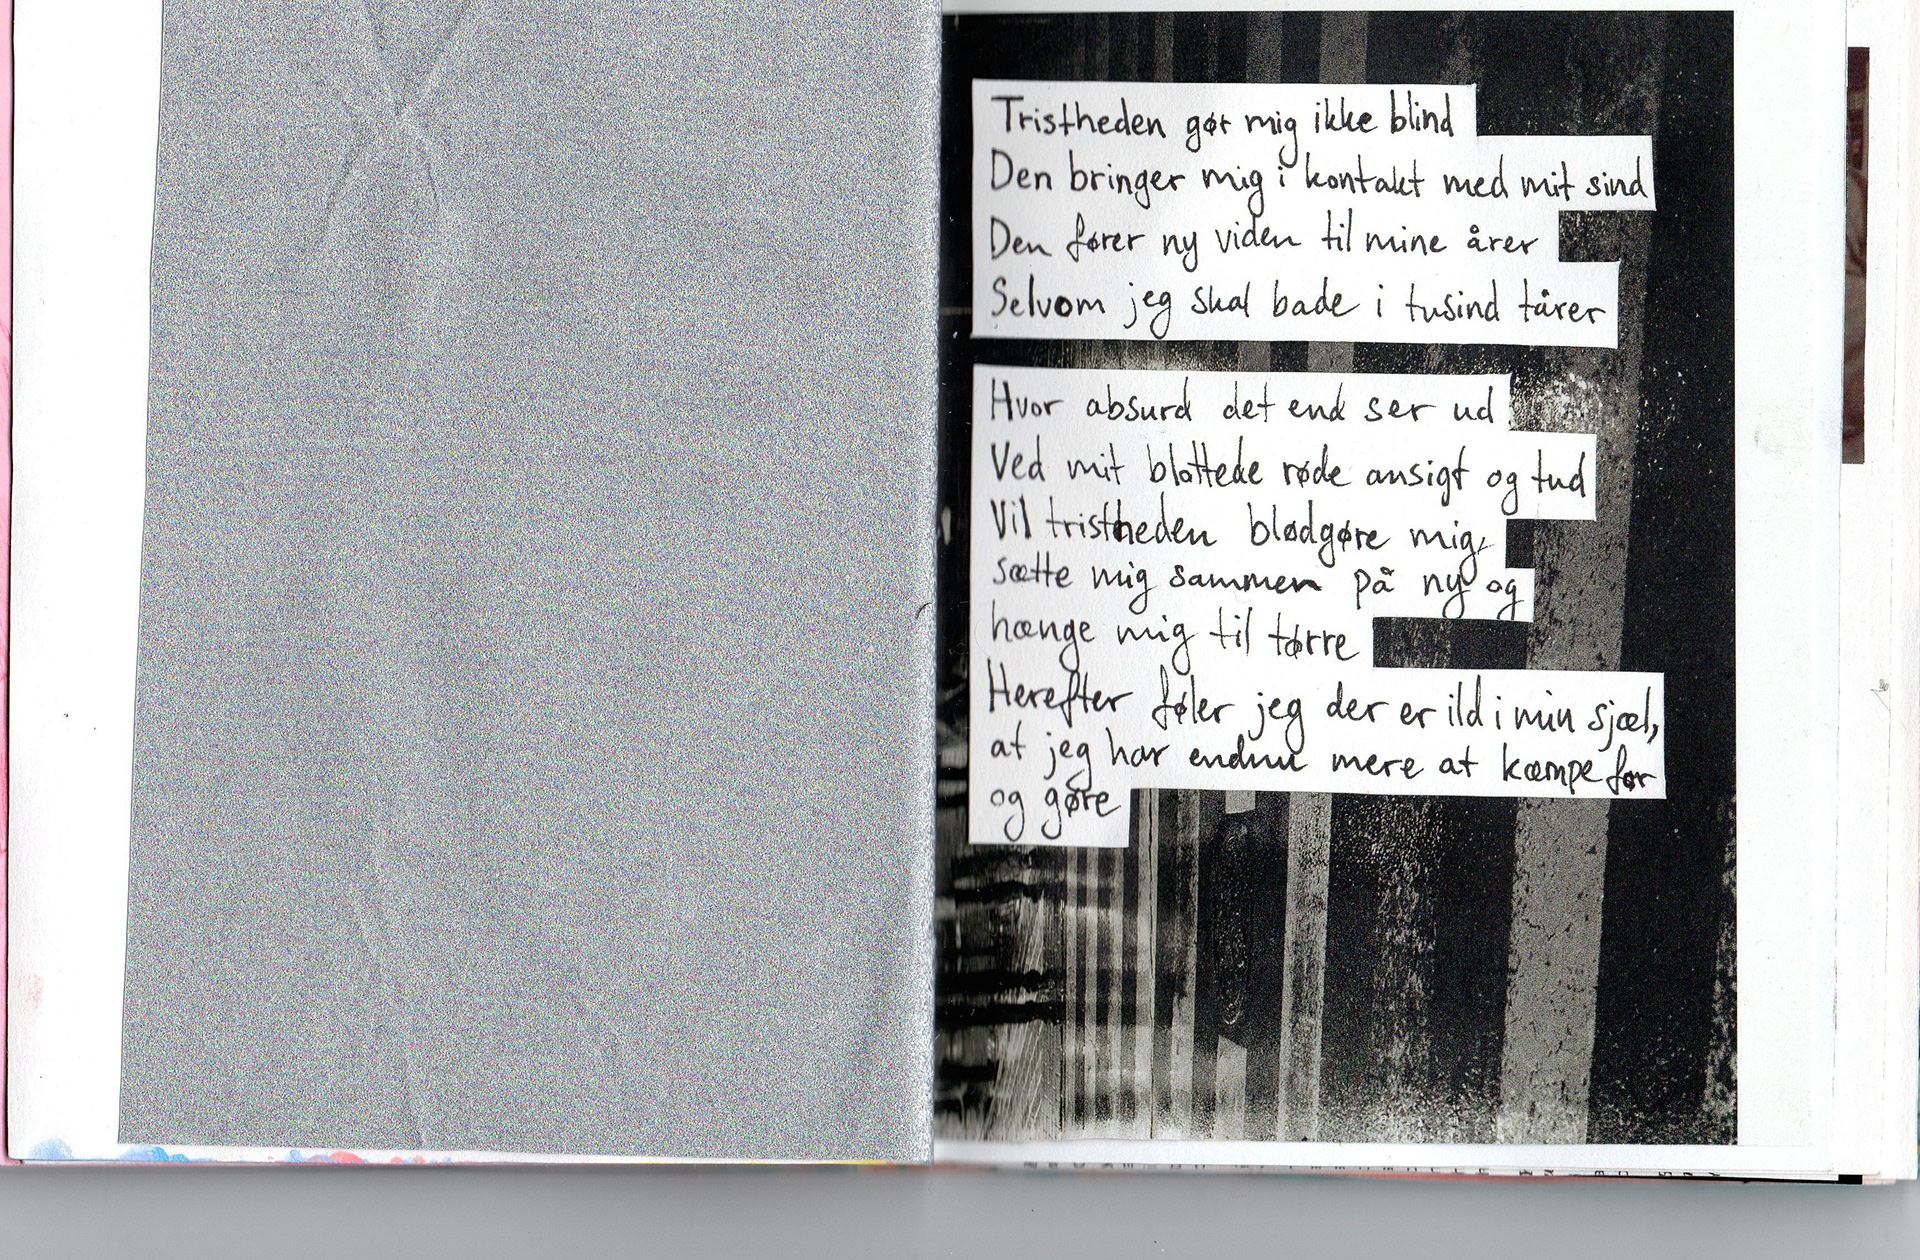 Tristheden gør mig ikke blind
Den bringer mig i kontakt med mit sind
Den fører ny viden til mine årer
Selvom jeg skal bade i tusind tårer
Hvor absurd det end ser ud
Ved mit blottede røde ansigt og tud
Vil tristheden blødgøre mig,
sætte mig sammen på ny og
hænge mig til tørre
Herefter føler jeg der er ild i min sjæl,
at jeg har endnu mere at kæmpe for
og gøre